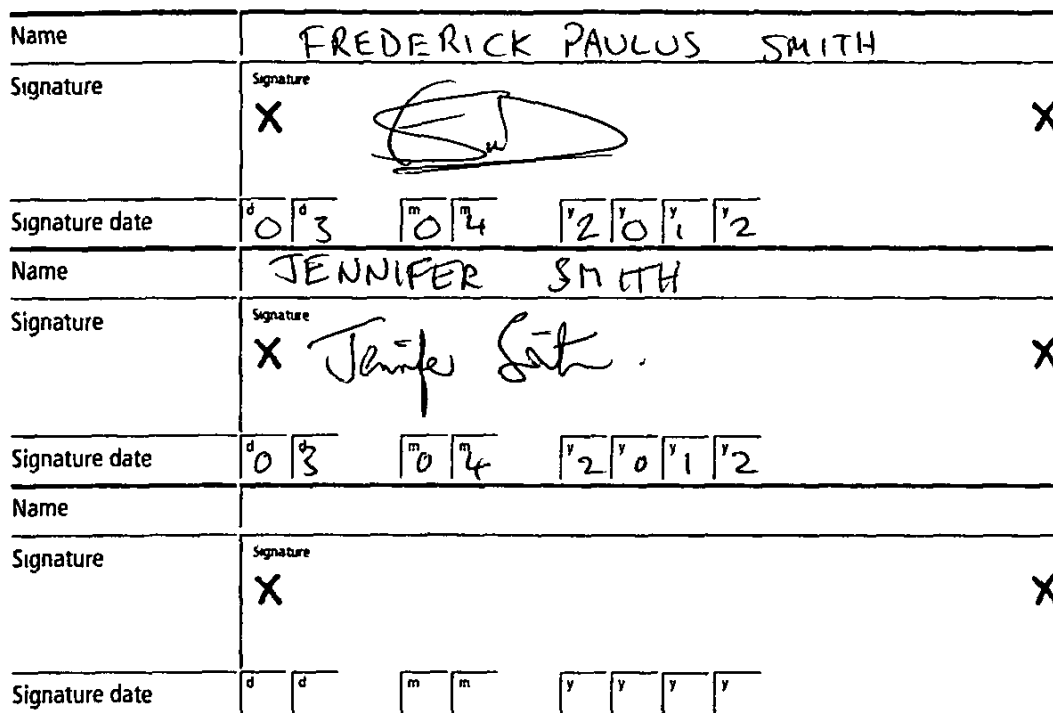 Name FREDERICK PAULUS SMITH
Signature Signature
X X
Signature date d0 d3 m0 m4 y2 y0 y1 y2
Name JENNIFER SMITH
Signature Signature
X Jennifer Smith. X
Signature date d0 d3 m0 m4 y2 y0 y1 y2
Name
Signature Signature
X X
Signature date d d m m y y y y